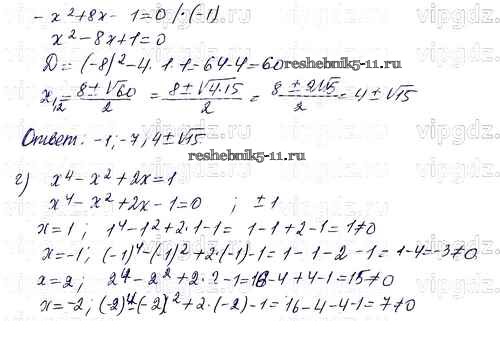 - x² + 8x - 1 = 0 / · (-1)
x² - 8x + 1 = 0
D = (-8)² - 4 · 1 · 1 = 64 - 4 = 60
x₁,₂ = 8 ± √60 / 2 = 8 ± √4·15 / 2 = 8 ± 2√15 / 2 = 4 ± √15
reshebnik5-11.ru
Ответ: -1; -7; 4 ± √15
reshebnik5-11.ru
г) x⁴ - x² + 2x = 1
x⁴ - x² + 2x - 1 = 0 ; ± 1
x = 1 ; 1⁴ - 1² + 2 · 1 - 1 = 1 - 1 + 2 - 1 = 1 ≠ 0
x = -1 ; (-1)⁴ - (-1)² + 2 · (-1) - 1 = 1 - 1 - 2 - 1 = 1 - 4 = -3 ≠ 0
x = 2 ; 2⁴ - 2² + 2 · 2 - 1 = 16 - 4 + 4 - 1 = 15 ≠ 0
x = -2 ; (-2)⁴ - (-2)² + 2 · (-2) - 1 = 16 - 4 - 4 - 1 = 7 ≠ 0
vipgdz.com